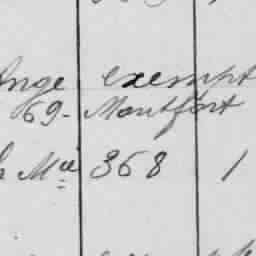 Ange exempt
69- Montfort
Mce 368 1